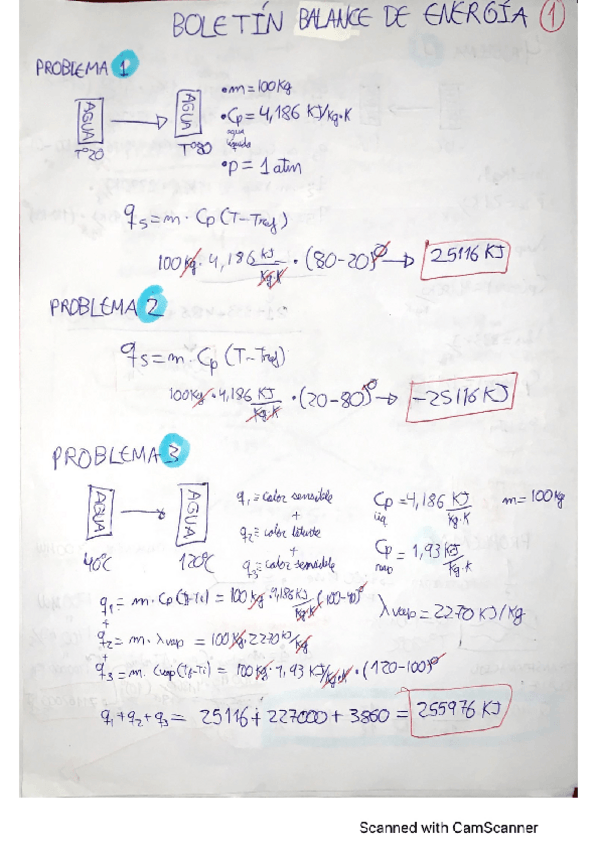 BOLETÍN BALANCE DE ENERGÍA 1
PROBLEMA 1
AGUA
Tº20
AGUA
Tº80
• m = 100 Kg
• Cp = 4,186 KJ/Kg·K
agua
líquida
• p = 1 atm
qs = m · Cp (T - Tref)
100 kg · 4,186 KJ/Kg·K · (80-20)º → 25116 KJ
PROBLEMA 2
qs = m · Cp (T - Tref)
100 Kg · 4,186 KJ/Kg·K · (20-80)º → -25116 KJ
PROBLEMA 3
AGUA
40ºC
AGUA
120ºC
q1 = calor sensible
+
q2 = calor latente
+
q3 = calor sensible
Cp líq = 4,186 KJ/Kg·K
m = 100 kg
Cp vap = 1,93 KJ/Kg·K
q1 = m · Cp (Tf-Ti) = 100 Kg · 4,186 KJ/Kg·K (100-40)º
λvap = 2270 KJ/Kg
+
q2 = m · λvap = 100 Kg · 2270 KJ/Kg
+
q3 = m · Cvap (Tf-Ti) = 100 Kg · 1,93 KJ/Kg·K · (120-100)º
q1 + q2 + q3 = 25116 + 227000 + 3860 = 255976 KJ
Scanned with CamScanner